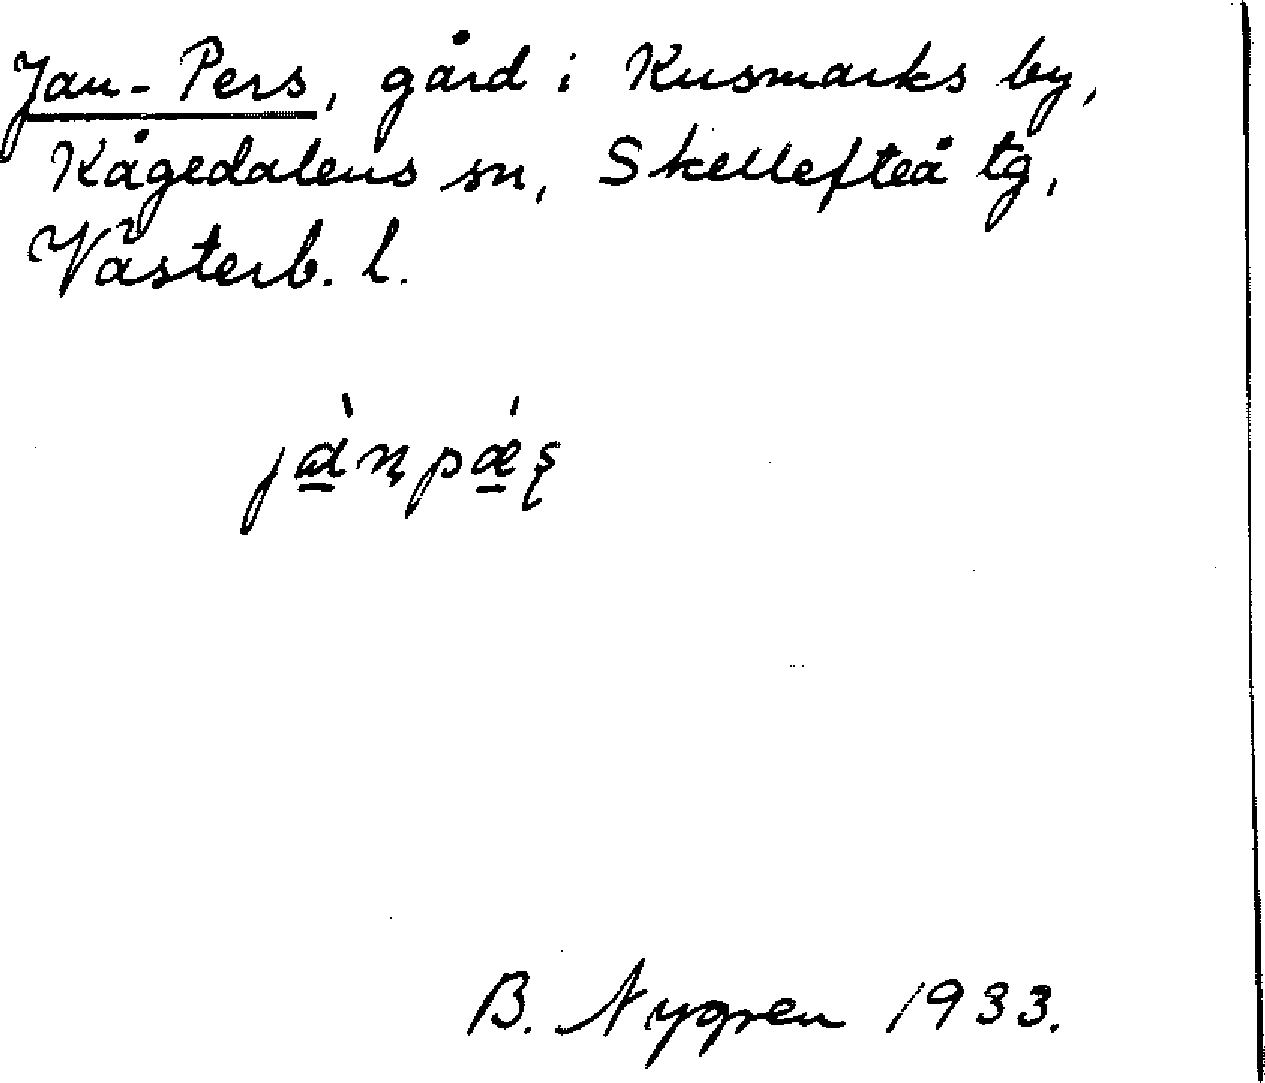 Jan-Pers, gård i Kusmarks by,
Kågedalens sn, Skellefteå tg,
Västerb. l.
jà̠n̥pǽ̠ʂ
B. Nygren 1933.